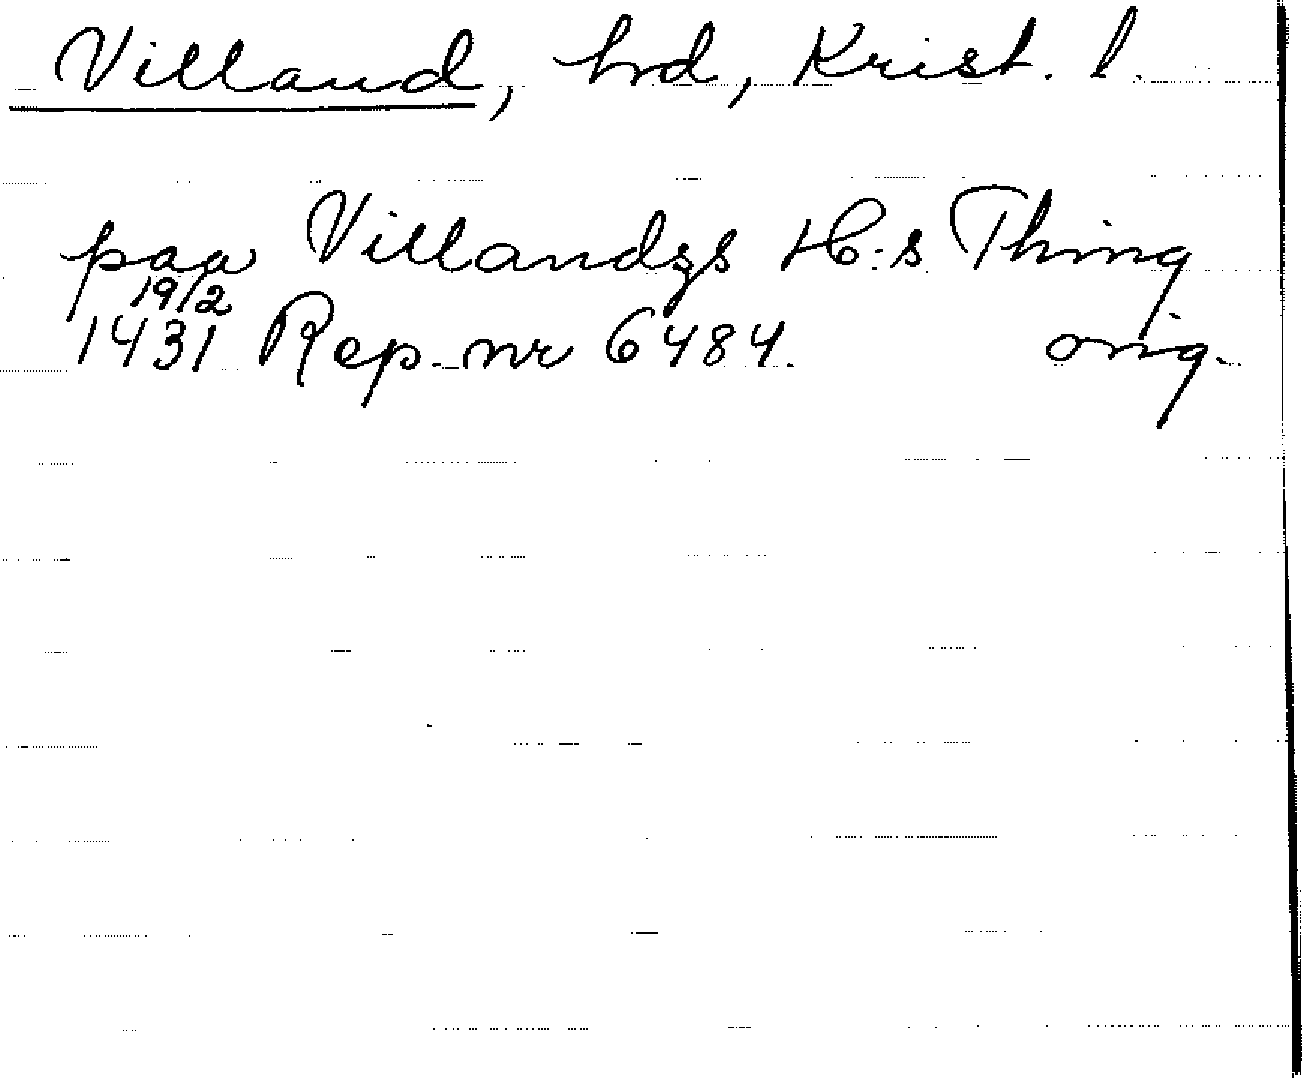 Villand, hrd, Krist. l.
paa Villandzs H:s Thing
19/2
1431 Rep. nr 6484. orig.